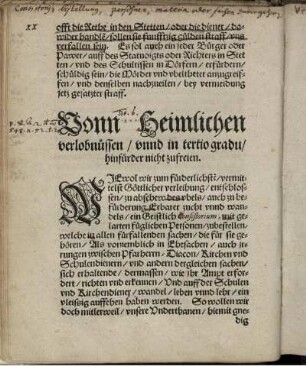 XX
offt die Rethe in den Stetten / oder die diener / da-
wider handlē / sollen sie fünfftzig gülden straff / uns
verfallen sein. Es sol auch ein jeder Bürger oder
Pawer / auff des Statvoigts oder Richters in Stet
ten / vnd des Schultissen in Dörfern / erfürdern /
schüldig sein / die Mörder vnd vbeltheter anzugreiff-
en / vnd denselben nachzueilen / bey vermeidung
jetz gesatzter straff.
Vonn Heimlichen
verlobnüssen / vnnd in tertio gradu /
hinfürder nicht zufreien.
WIewol wir zum fürderlichstē / vermit-
telst Göttlicher verleihung / entschlos-
sen / zu abschew des vbels / auch zu be-
fürderung Erbarer zucht vnnd wan-
dels / ein Geistlich Consistorium, mit ge-
larten tüglichen Personen / zubestellen /
welche in allen fürfallenden sachen / die für sie ge-
hören / Als vornemblich in Ehsachen / auch jr-
rungen zwischen Pfarhern / Diacon / Kirchen vnd
Schulendienern / vnd andern dergleichen sachen /
sich erhaltende / dermassen / wie jhr Ampt erfor-
dert / richten vnd erkennen / Vnd auff der Schulen
vnd Kirchendiener / wandel / leben vnnd lehr / ein
vleissig auffsehen haben werden. So wollen wir
doch mitlerweil / vnsere Vnderthanen / hiemit gne-
dig